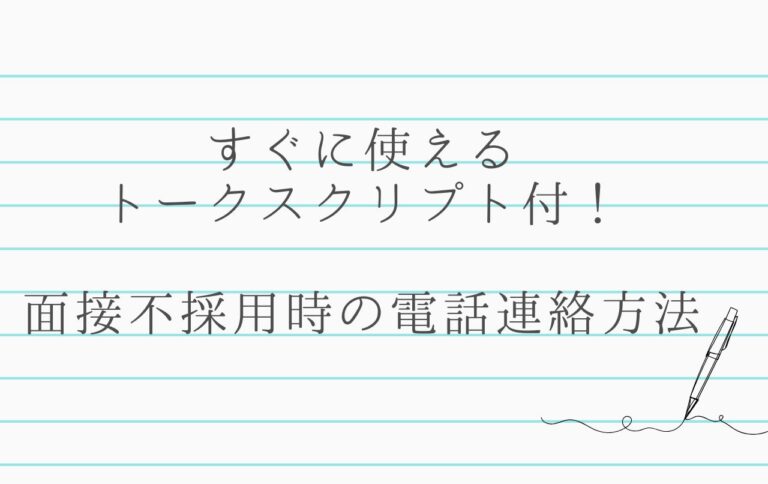 すぐに使える
トークスクリプト付！
面接不採用時の電話連絡方法